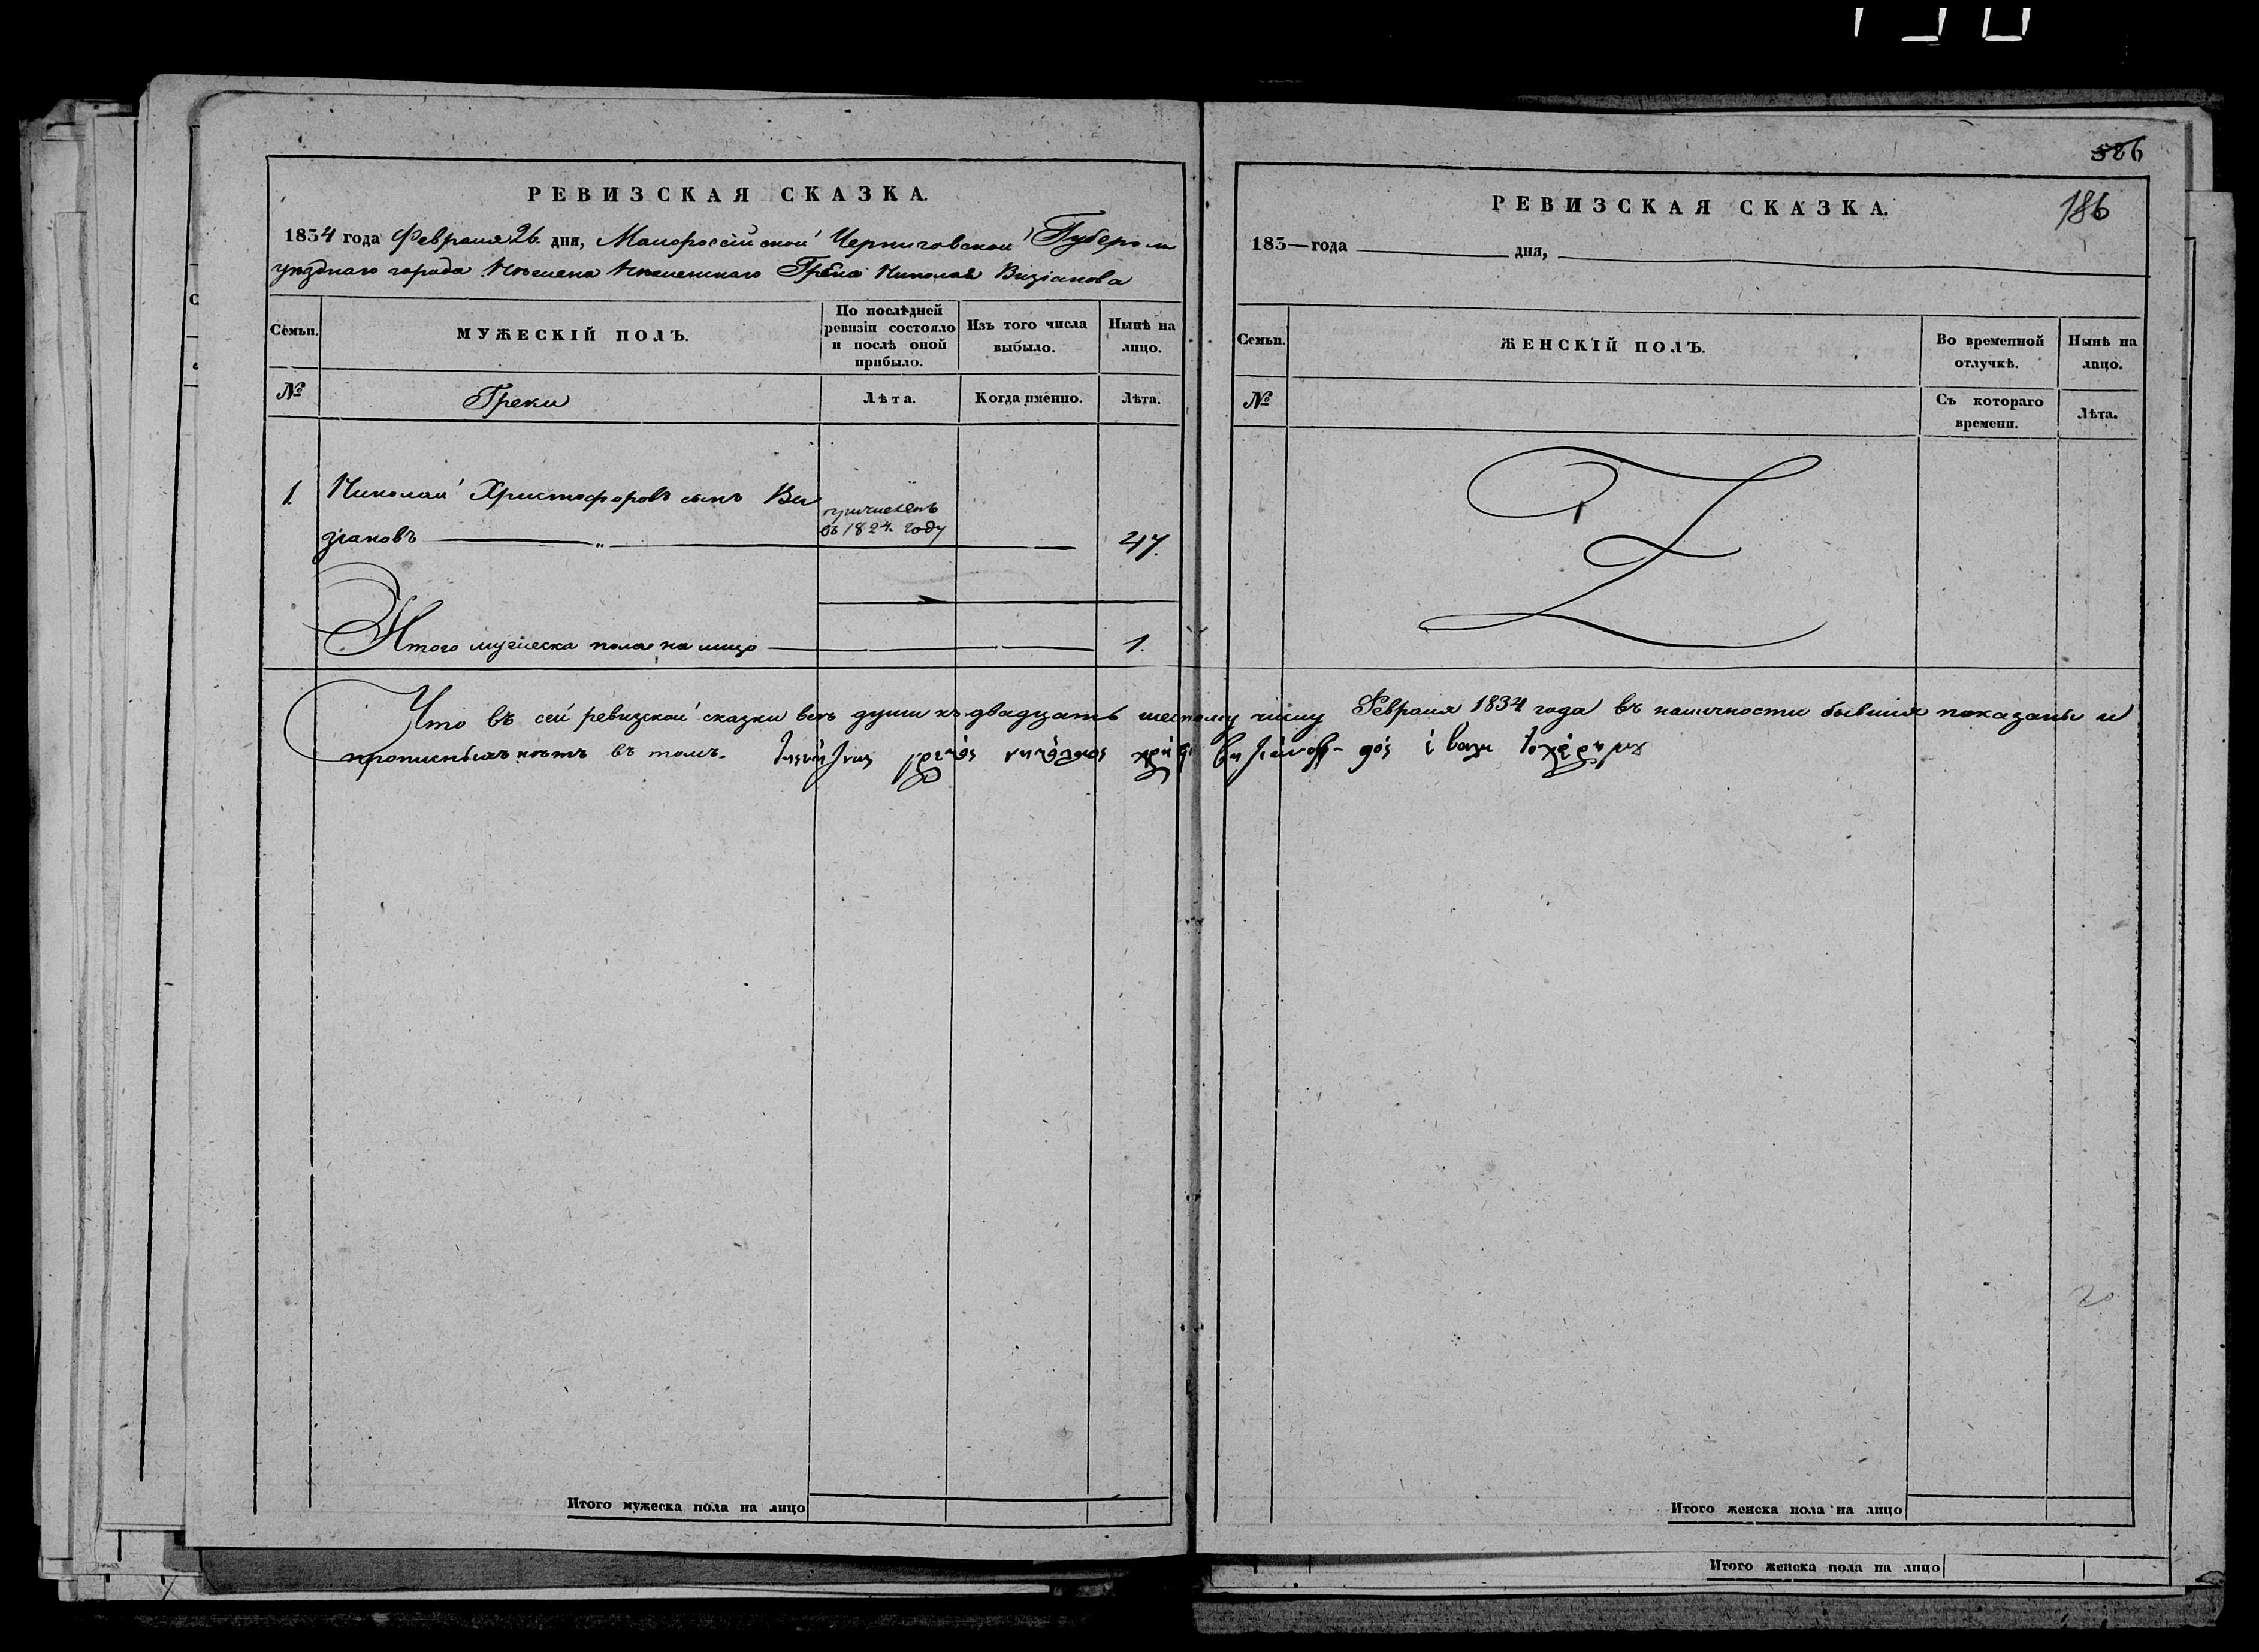 586
186
РЕВИЗСКАЯ СКАЗКА.
1834 года Февраля 26 дня, Малороссійской Черниговской Губерніи
уѣзднаго города Нѣжина Нѣжинскаго Грека Николая Визіанова
Семьи.
МУЖЕСКІЙ ПОЛЪ.
По послѣдней ревизіи состояло и послѣ оной прибыло.
Изъ того числа выбыло.
Нынѣ на лицо.
№
Греки
Лѣта.
Когда имённо.
Лѣта.
1. Николай Христофоровъ сынъ Ви
зіановъ
причисленъ
въ 1824. году
47.
Итого мужеска пола на лицо 1.
РЕВИЗСКАЯ СКАЗКА.
183—года дня,
Семьи.
ЖЕНСКІЙ ПОЛЪ.
Во временной отлучкѣ.
Нынѣ на лицо.
№
Съ котораго времени.
Лѣта.
Что въ сей ревизской сказки всѣ души къ двадцать шестому числу Февраля 1834 года въ наличности бывшія показаны и
прописныхъ нѣтъ въ томъ.
Итого мужеска пола на лицо
Итого женска пола на лицо
20
Итого женска пола на лицо